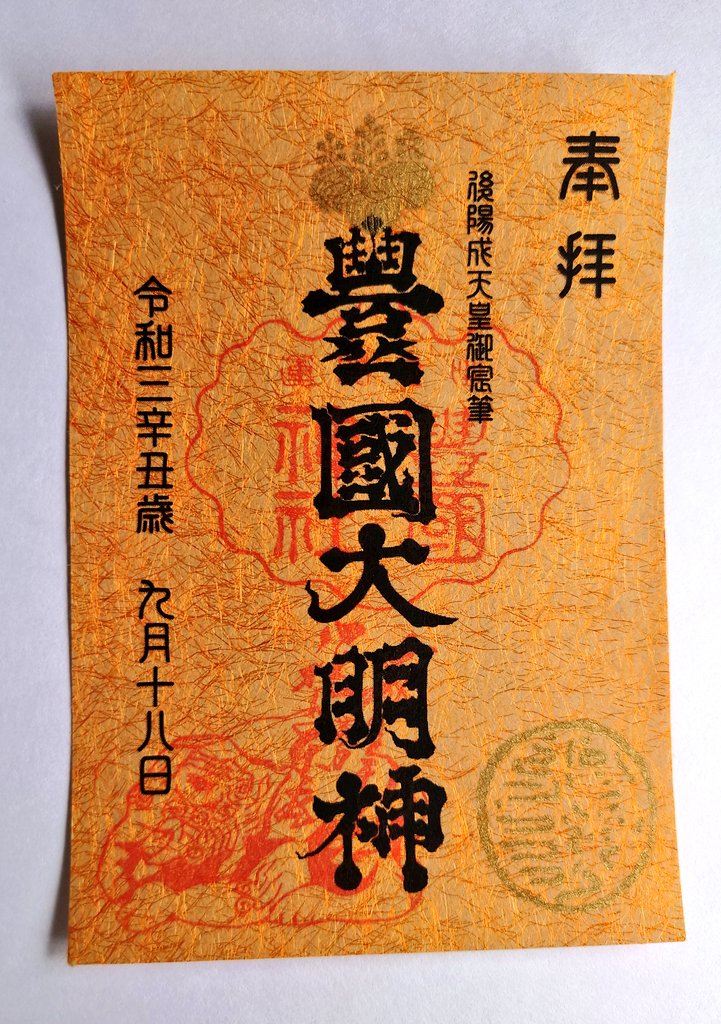 奉拝
後陽成天皇御宸筆
豐國大明神
令和三辛丑歳 九月十八日